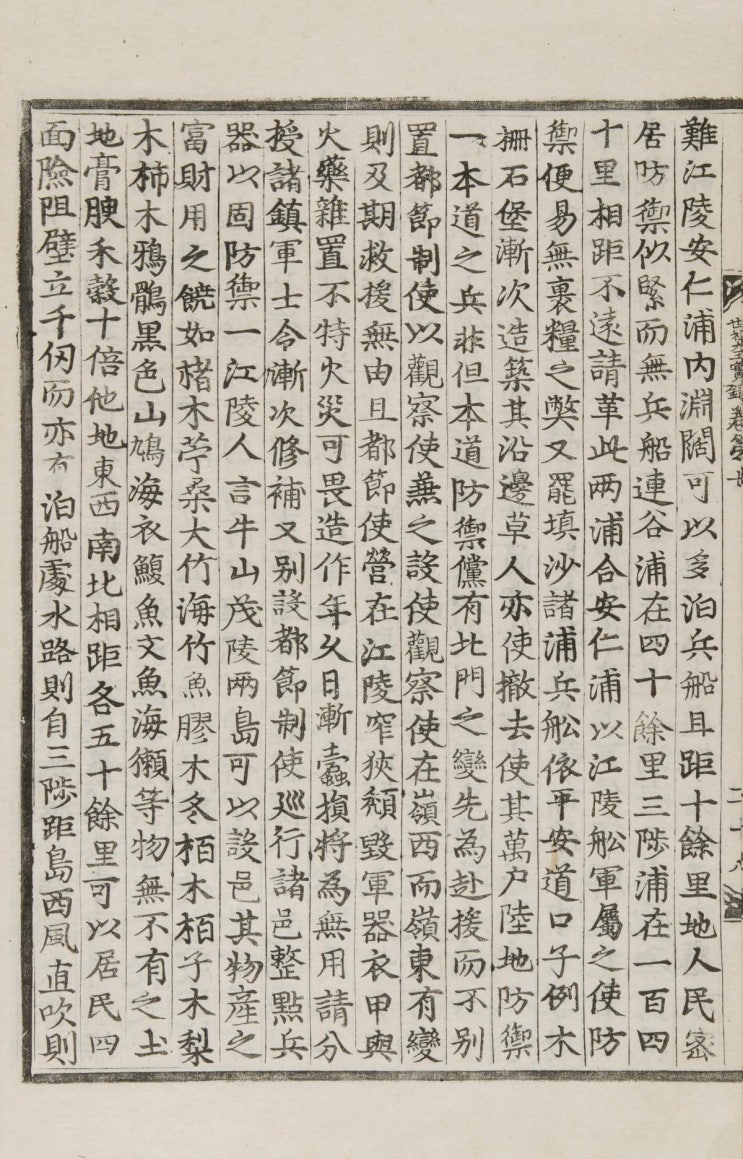 難江陵安仁浦內淵闊可以多泊兵船且距十餘里地人民密
居防禦似緊而無兵船連谷浦在四十餘里三陟浦在一百四
十里相距不遠請革此两浦合安仁浦以江陵舩軍屬之使防
禦便易無裹糧之弊又罷填沙諸浦兵舩依平安道口子例木
柵石堡漸次造築其沿邊草人亦使撤去使其萬戶陸地防禦
一本道之兵非但本道防禦儻有北門之變先為赴援而不别
置都節制使以觀察使兼之設使觀察使在嶺西而嶺東有變
則及期救援無由且都節使營在江陵窄狹頹毀軍器衣甲與
火藥雜置不特火災可畏造作年久日漸蠧損將為無用請分
授諸鎮軍士令漸次修補又别設都節制使廵行諸邑整點兵
器以固防禦一江陵人言牛山茂陵兩島可以設邑其物產之
富財用之饒如楮木苧桑大竹海竹魚膠木冬栢木栢子木梨
木柿木鴉鶻黑色山鳩海衣鰒魚文魚海獺等物無不有之土
地膏腴禾穀十倍他地東西南北相距各五十餘里可以居民四
面險阻壁立千仞而亦有泊船處水路則自三陟距島西風直吹則
世祖大王實録卷第七
二十八